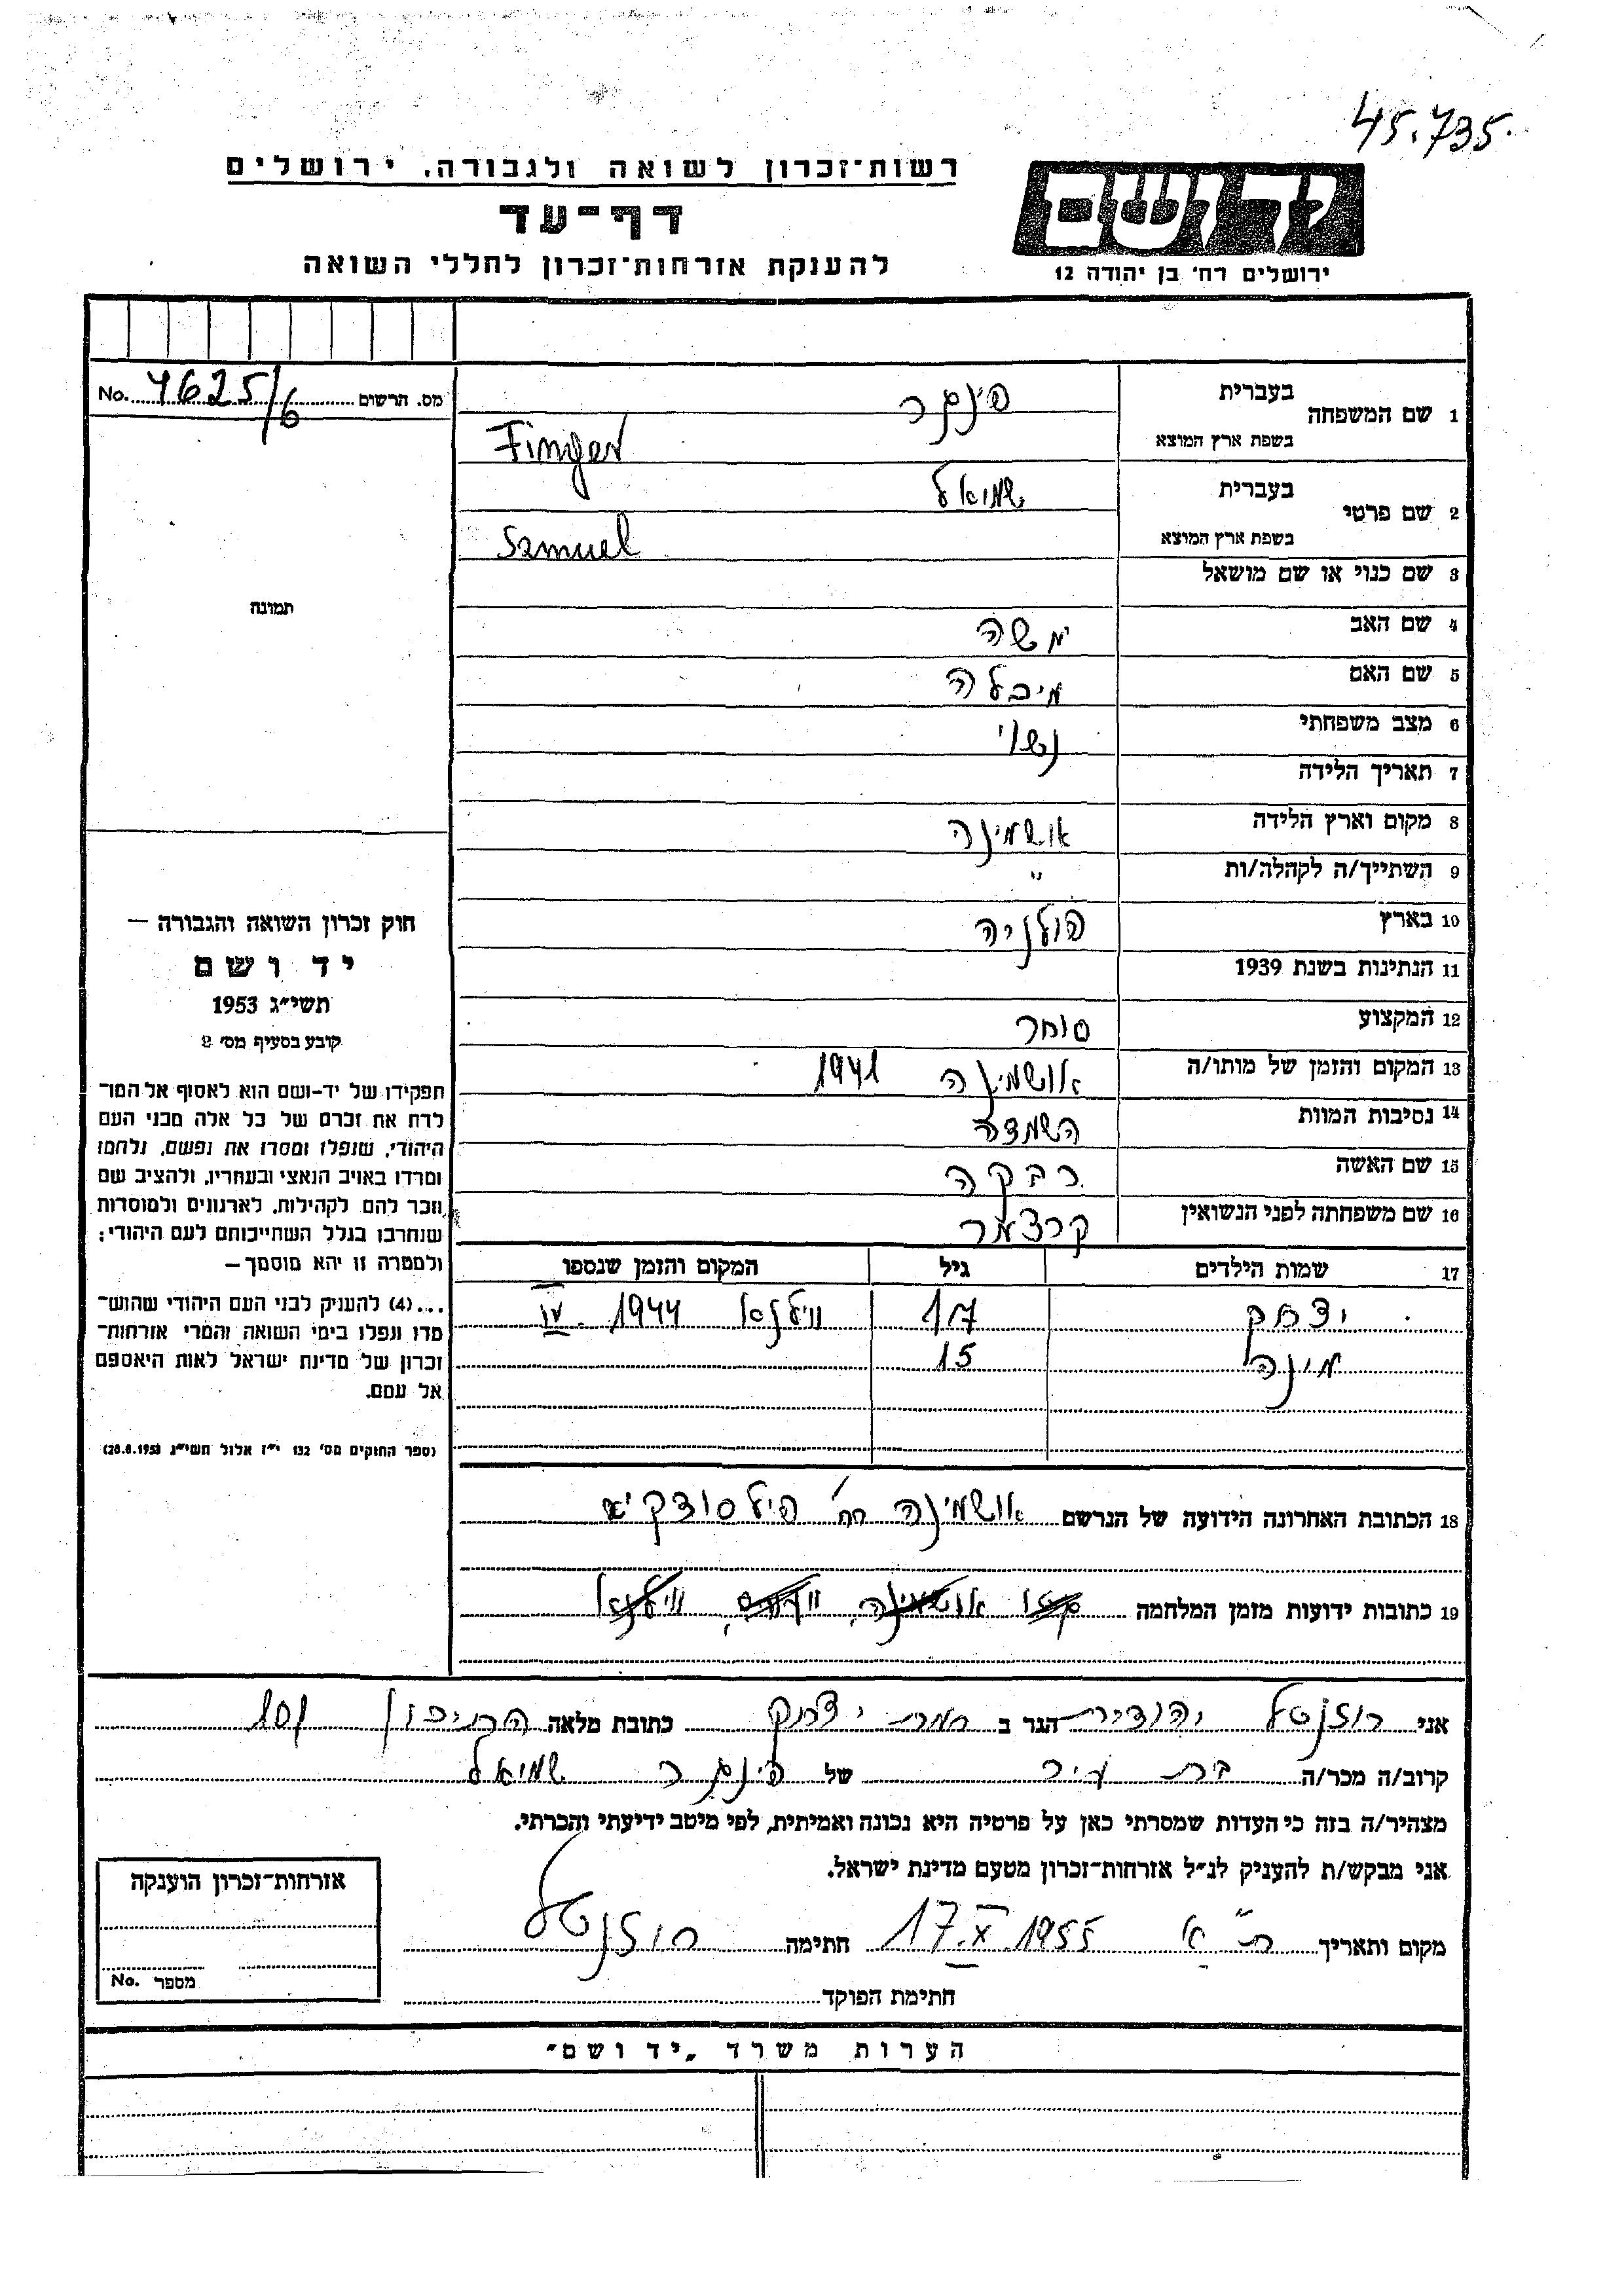 45.735.
רשות־זכרון לשואה ולגבורה, ירושלים
דף-עד
להענקת אזרחות־זכרון לחללי השואה
יד ושם
ירושלים רח' בן יהודה 12
מס. הרשום 4625/6 No.
1 שם המשפחה
בעברית פינגר
בשפת ארץ המוצא Finger
2 שם פרטי
בעברית שמואל
בשפת ארץ המוצא Szmuel
3 שם כנוי או שם מושאל
4 שם האב משה
5 שם האם מיכלה
6 מצב משפחתי נשוי
7 תאריך הלידה
8 מקום וארץ הלידה אושמינה
9 השתייך/ה לקהלה/ות "
10 בארץ פולניה
11 הנתינות בשנת 1939
12 המקצוע סוחר
13 המקום והזמן של מותו/ה אושמינה 1941
14 נסיבות המוות השמדה
15 שם האשה רבקה
16 שם משפחתה לפני הנשואין
17 שמות הילדים גיל המקום והזמן שנספו
יצחק 17 ווילנא 1944 .IV
מינה 15
18 הכתובת האחרונה הידועה של הנרשם אושמינה רח' פילסודקיא
19 כתובות ידועות מזמן המלחמה גטו אושמינה, ווילנא
תמונה
חוק זכרון השואה והגבורה —
יד ושם
תשי"ג 1953
קובע בסעיף מס' 2
תפקידו של יד-ושם הוא לאסוף אל המו־
לדת את זכרם של כל אלה מבני העם
היהודי, שנפלו ומסרו את נפשם, נלחמו
ומרדו באויב הנאצי ובעוזריו, ולהציב שם
וזכר להם לקהילות, לארגונים ולמוסדות
שנחרבו בגלל השתייכותם לעם היהודי;
ולמטרה זו יהא מוסמך—
...(4) להעניק לבני העם היהודי שהוש־
מדו ונפלו בימי השואה והמרי אזרחות־
זכרון של מדינת ישראל לאות היאספם
אל עמם.
(ספר החוקים מס' 132 י"ז אלול תשי"ג 28.8.1953)
אני רוזנטל יהודית הגר ב רמת יצחק כתובת מלאה התיכון 101
קרוב/ה מכר/ה בת עיר של פינגר שמואל
מצהיר/ה בזה כי העדות שמסרתי כאן על פרטיה היא נכונה ואמיתית, לפי מיטב ידיעתי והכרתי.
אני מבקש/ת להעניק לנ"ל אזרחות-זכרון מטעם מדינת ישראל.
מקום ותאריך ת"א 17.X.1955 חתימה רוזנטל
חתימת הפוקד
אזרחות-זכרון הוענקה
מספר No.
הערות משרד „יד ושם"